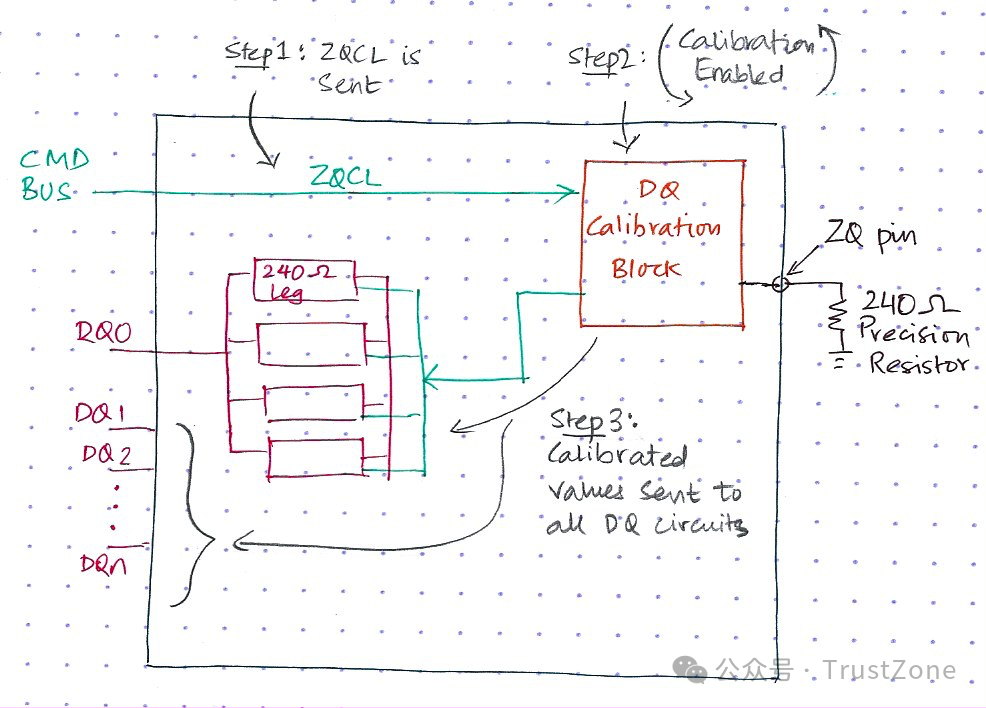 Step1: ZQCL is
Sent
Step2: (Calibration
Enabled)
CMD
BUS
ZQCL
DQ
Calibration
Block
ZQ pin
240Ω
Precision
Resistor
240Ω
Leg
DQ0
DQ1
DQ2
DQn
Step3:
Calibrated
values sent to
all DQ circuits
公众号 · TrustZone